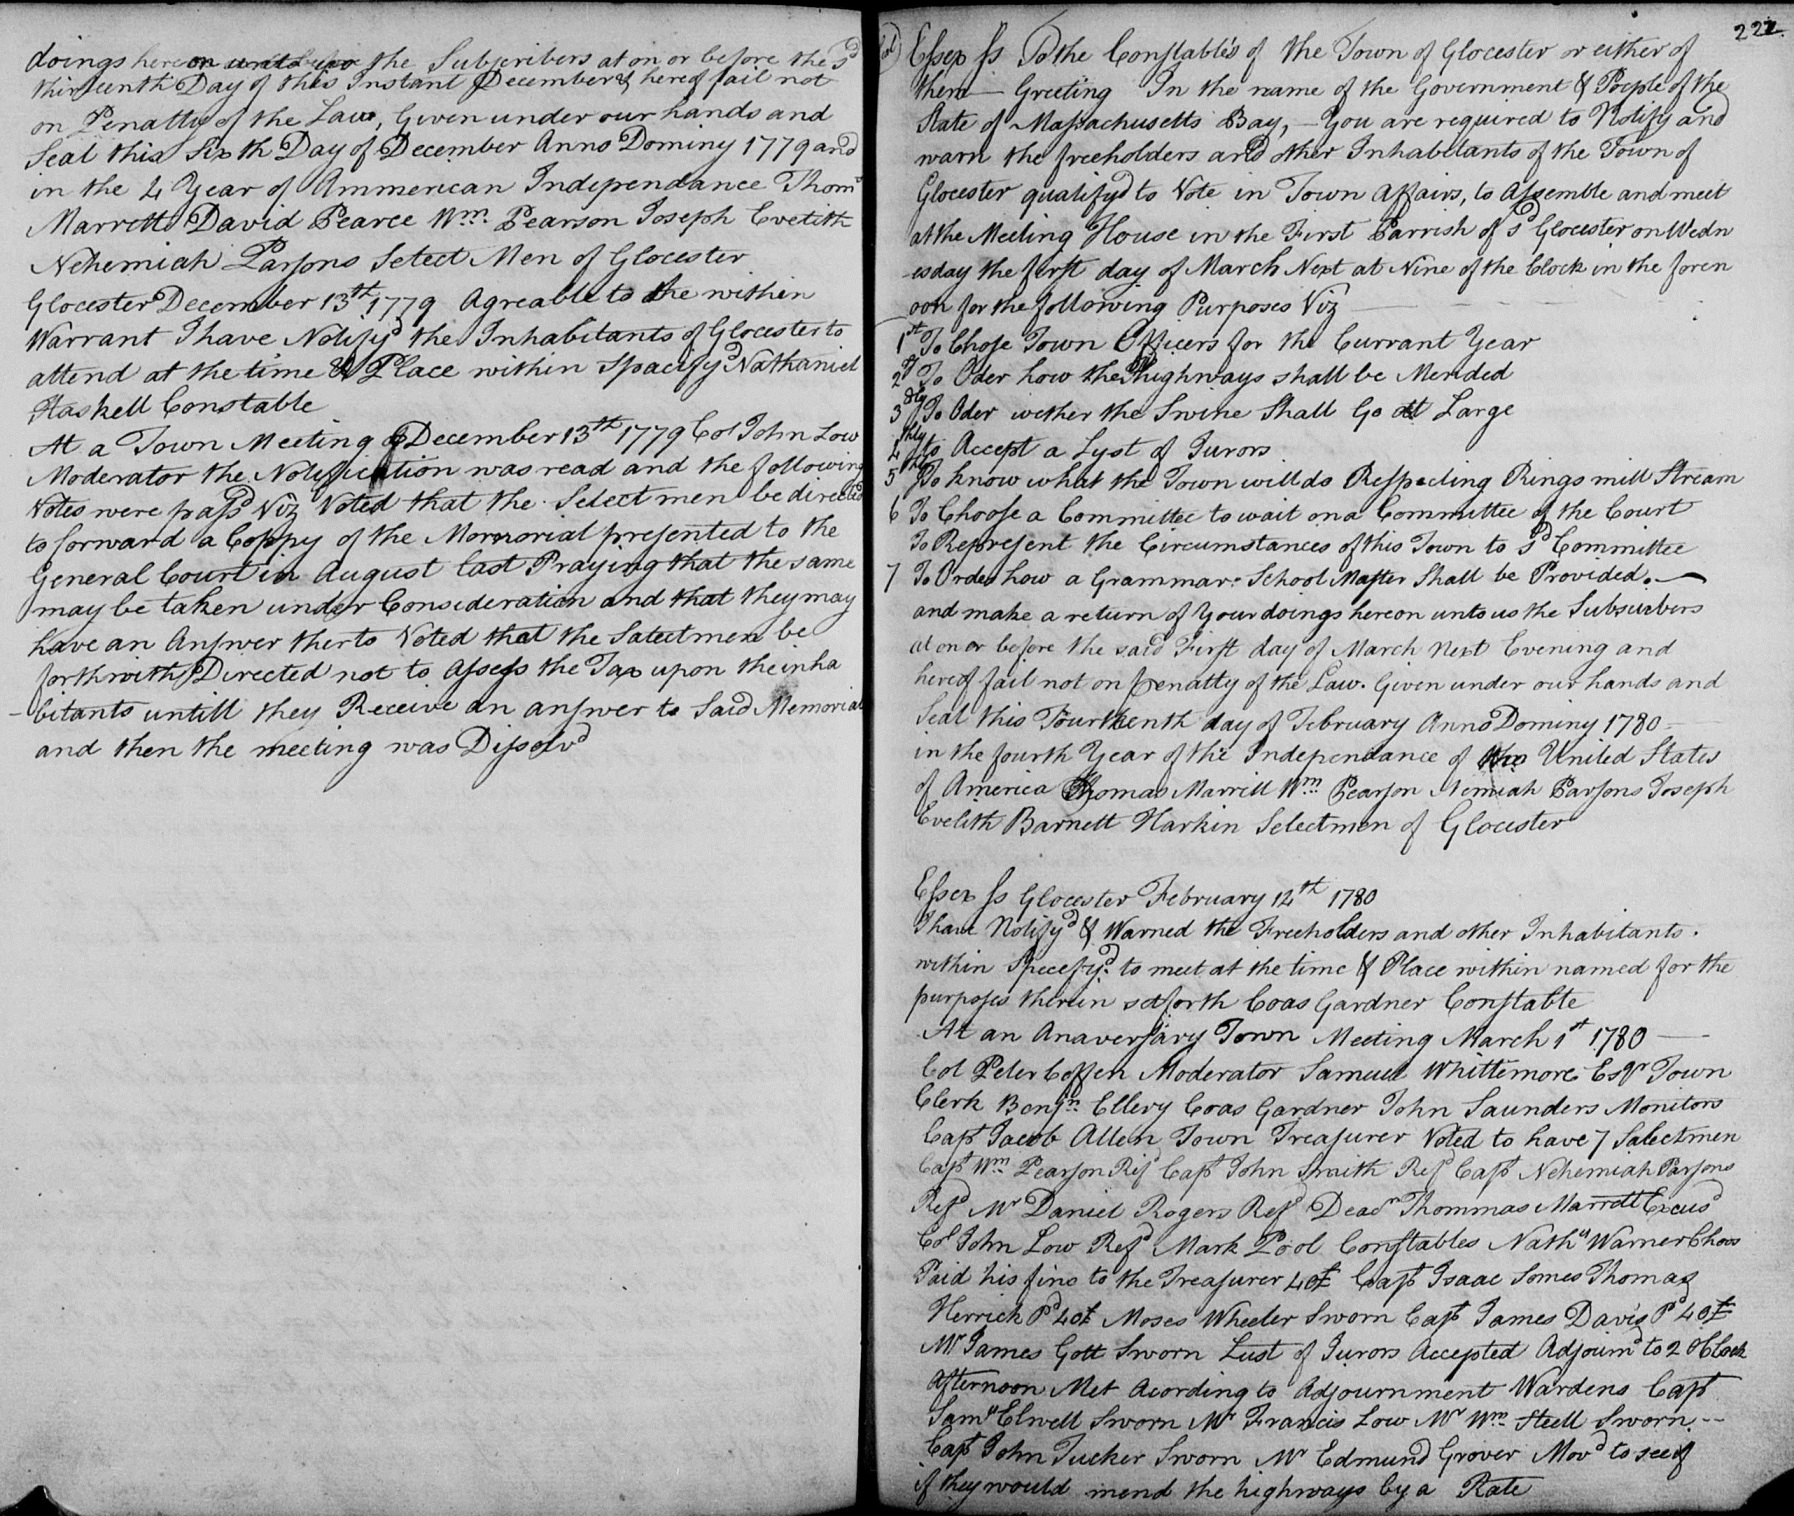 doings hereon unto the Subscribers at on or before the sd
thirteenth Day of this Instant December & hereof fail not
on Penatty of the Law, Given under our hands and
Seal this Sixth Day of December Anno Dominy 1779 and
in the 4 Year of Ammerican Independance Thoms
Marrett David Pearce Wm. Pearson Joseph Evelith
Nehemiah Parsons Select Men of Glocester
Glocester December 13th 1779 Agreable to the within
Warrant I have Notifyd the Inhabitants of Glocester to
attend at the time & Place within Spacifyd Nathaniel
Haskell Constable
At a Town Meeting December 13th 1779 Col John Low
Moderator the Notification was read and the following
Votes were passd Viz Voted that the Select men be directed
to forward a Coppy of the Memorial presented to the
General Court in August last Praying that the same
may be taken under Consideration and that they may
have an Answer therto Voted that the Salectmen be
forthwith Directed not to Assess the Tax upon the inha
-bitants untill they Receive an answer to Said Memorial
and then the meeting was Dissolvd
222
Essex ss To the Constables of the Town of Glocester or either of
them — Greeting In the name of the Government & People of the
State of Massachusetts Bay, — You are required to Notify and
warn the freeholders and other Inhabitants of the Town of
Glocester qualifyd to Vote in Town Affairs, to Assemble and meet
at the Meeting House in the First Parrish of sd Glocester on Wedn
-esday the first day of March Next at Nine of the Clock in the foren
oon for the following Purposes Viz
1st To Chose Town Officers for the Currant Year
2dly To Oder how the highways shall be Mended
3dly To Oder wether the Swine Shall Go at Large
4thly to Accept a Lyst of Jurors
5thly To know what the Town will do Respecting Rings mill Stream
6 To Choose a Committee to wait on a Committee of the Court
To Represent the Circumstances of this Town to sd Committee
7 To Order how a Grammar-School Master Shall be Provided. —
and make a return of Your doings hereon unto us the Subscribers
at on or before the said First day of March next Evening and
hereof fail not on penatty of the Law. Given under our hands and
Seal this Fourteenth day of February Anno Dominy 1780 —
in the fourth Year of the Independance of the United States
of America Thomas Marrill Wm Pearson Nemiah Parsons Joseph
Evelith Barnett Harkin Selectmen of Glocester
Essex ss Glocester February 12th 1780
I have Notifyd & Warned the Freeholders and other Inhabitants.
within Specefyd. to meet at the time & Place within named for the
purposes therein set forth Coas Gardner Constable
At an Anaversary Town Meeting March 1st 1780 —
Col Peter Coffen Moderator Samuel Whittemore Esqr Town
Clerk Benjn. Ellery Coas Gardner John Saunders Monitors
Capt Jacob Allen Town Treasurer Voted to have 7 Salectmen
Capt Wm Pearson Refd Capt John Smith Refd Capt Nehemiah Parsons
Refd Mr Daniel Rogers Refd Deacn Thommas Marrett Excusd
Col John Low Refd Mark Pool Constables Nathll Warner Chose
Paid his fine to the Treasurer 40£ Capt Isaac Somes Thomas
Herrick Pd 40£ Moses Wheeler Sworn Capt James Davis Pd 40£
Mr James Gott Sworn Lust of Jurors Accepted Adjournd to 2 oClock
Afternoon Met Acording to Adjournment Wardens Capt
Samll Elwell Sworn Mr Francis Low Mr Wm Steell Sworn --
Capt John Tucker Sworn Mr Edmund Grover Movd to see if
if they would mend the highways by a Rate